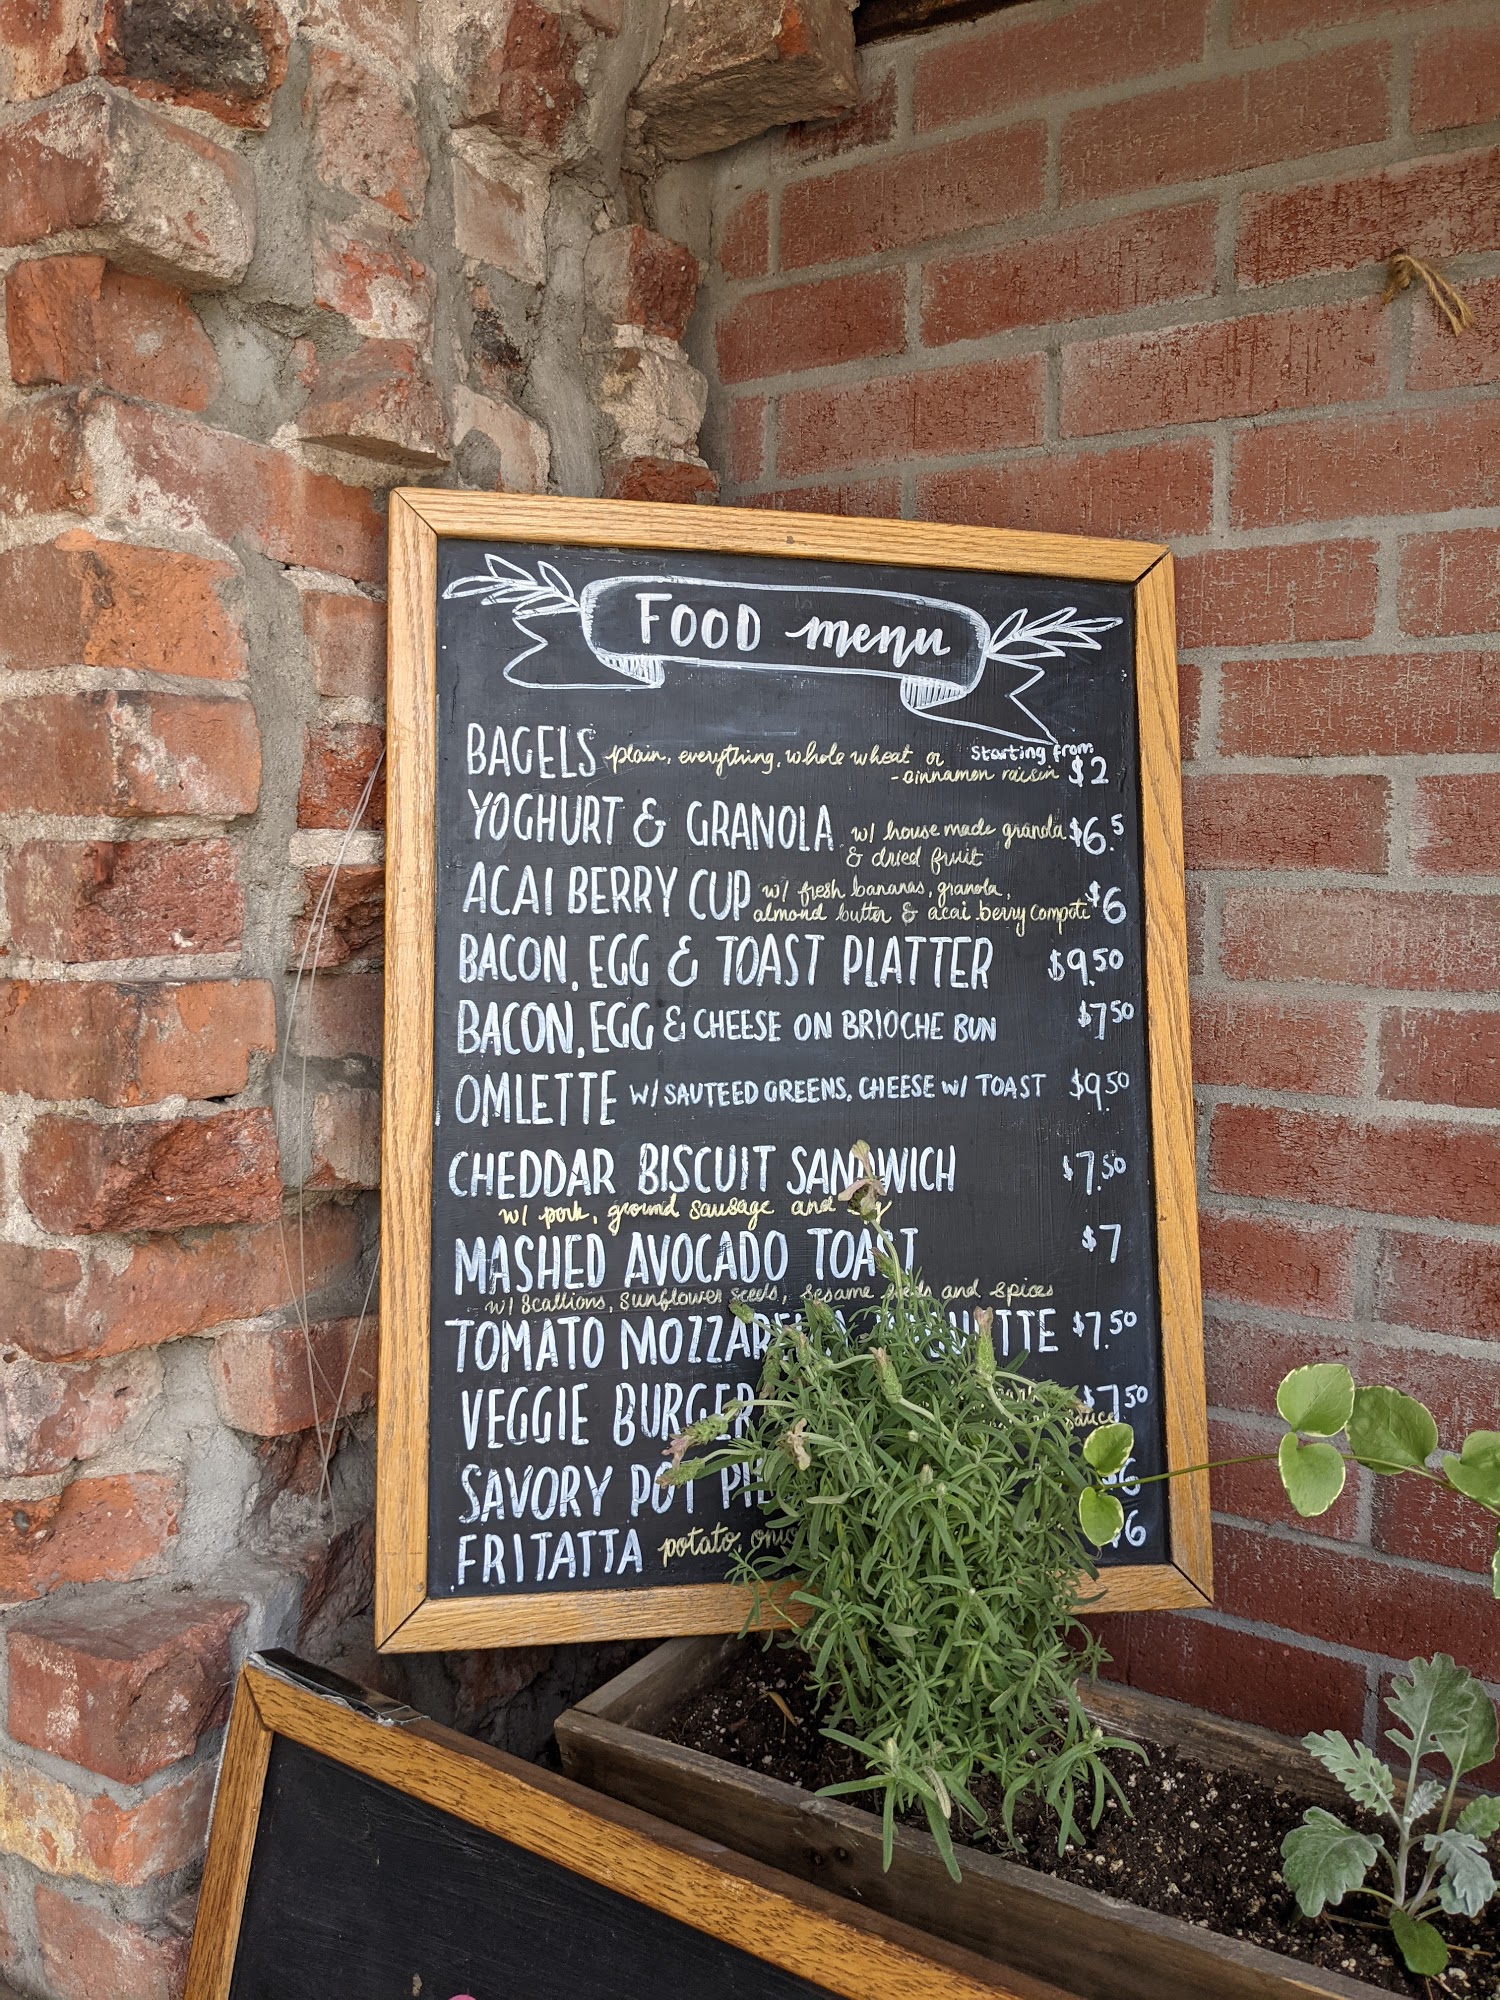 FOOD menu
BAGELS plain, everything, whole wheat or Starting from
- cinnamon raisin $2
YOGHURT & GRANOLA w/ house made granola $6.5
& dried fruit
ACAI BERRY CUP w/ fresh bananas, granola, $6
almond butter & acai berry compote
BACON, EGG & TOAST PLATTER $9.50
BACON, EGG & CHEESE ON BRIOCHE BUN $7.50
OMLETTE W/ SAUTEED GREENS, CHEESE W/ TOAST $9.50
CHEDDAR BISCUIT SANDWICH $7.50
w/ pork, ground sausage and
MASHED AVOCADO TOAST $7
w/ scallions, sunflower seeds, sesame seeds and spices
TOMATO MOZZARELLA $7.50
VEGGIE BURGER $7.50
sauce
SAVORY POT PIE $6
FRITATTA potato, 6